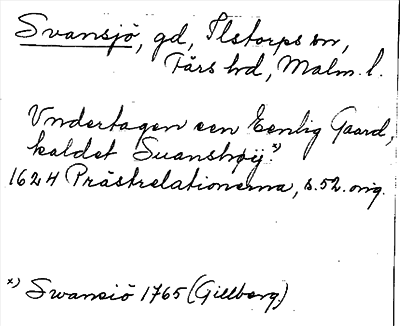 Svansjö, gd, Ilstorps sn,
Färs hd, Malm. l.
Vndertagen een Eenlig Gaard,
kaldet Suanshøÿ. x)
1624 Prästrelationerna, s. 52. orig.
x) Swansiö 1765 (Gillberg)